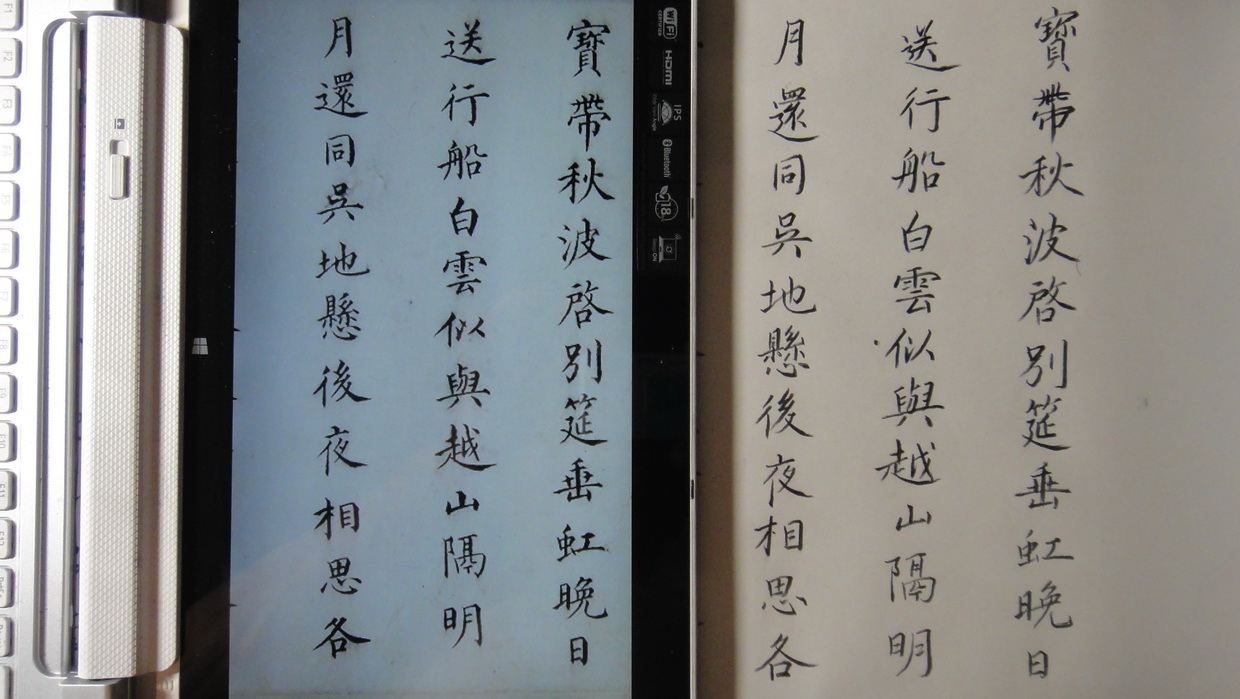 寶帶秋波啓別筵垂虹晚日
送行船白雲似與越山隔明
月還同吳地懸後夜相思各
寶帶秋波啓別筵垂虹晚日
送行船白雲似與越山隔明
月還同吳地懸後夜相思各
WiFi
CERTIFIED
HDMI
IPS
Bluetooth
18
F1
F2
F3